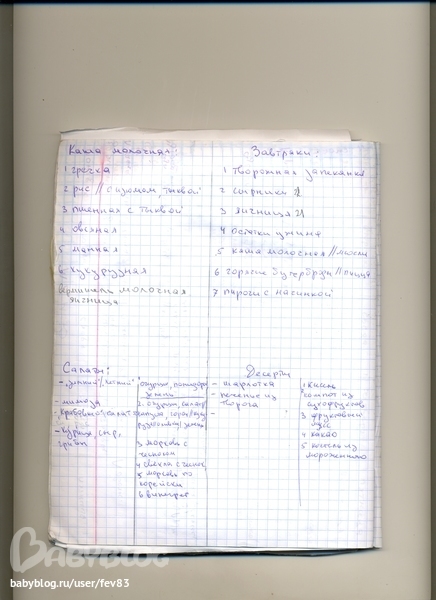 Каша молочная:
1 гречка
2 рис // с изюмом, тыквой
3 пшенная с тыквой
4 овсяная
5 манная
6 кукурузная
вермишель молочная
яичница
Завтраки:
1 творожная запеканка
2 сырники
3 яичница
4 остатки ужина
5 каша молочная // мюсли
6 горячие бутерброды // пицца
7 пироги с начинкой
Салаты:
- мимоза
- крабовый салат
- курица, сыр,
грибы
огурцы, помидоры
3 морковь с
чесноком
4 свекла с чесн
5 морковь по
корейски
6 винегрет
Десерты
- шарлотка
- печенье из
творога
1 Кисель
компот из
сухофруктов
3 фруктовый
мусс
4 какао
5 коктейль из
мороженного
BABYBLOG
babyblog.ru/user/fev83